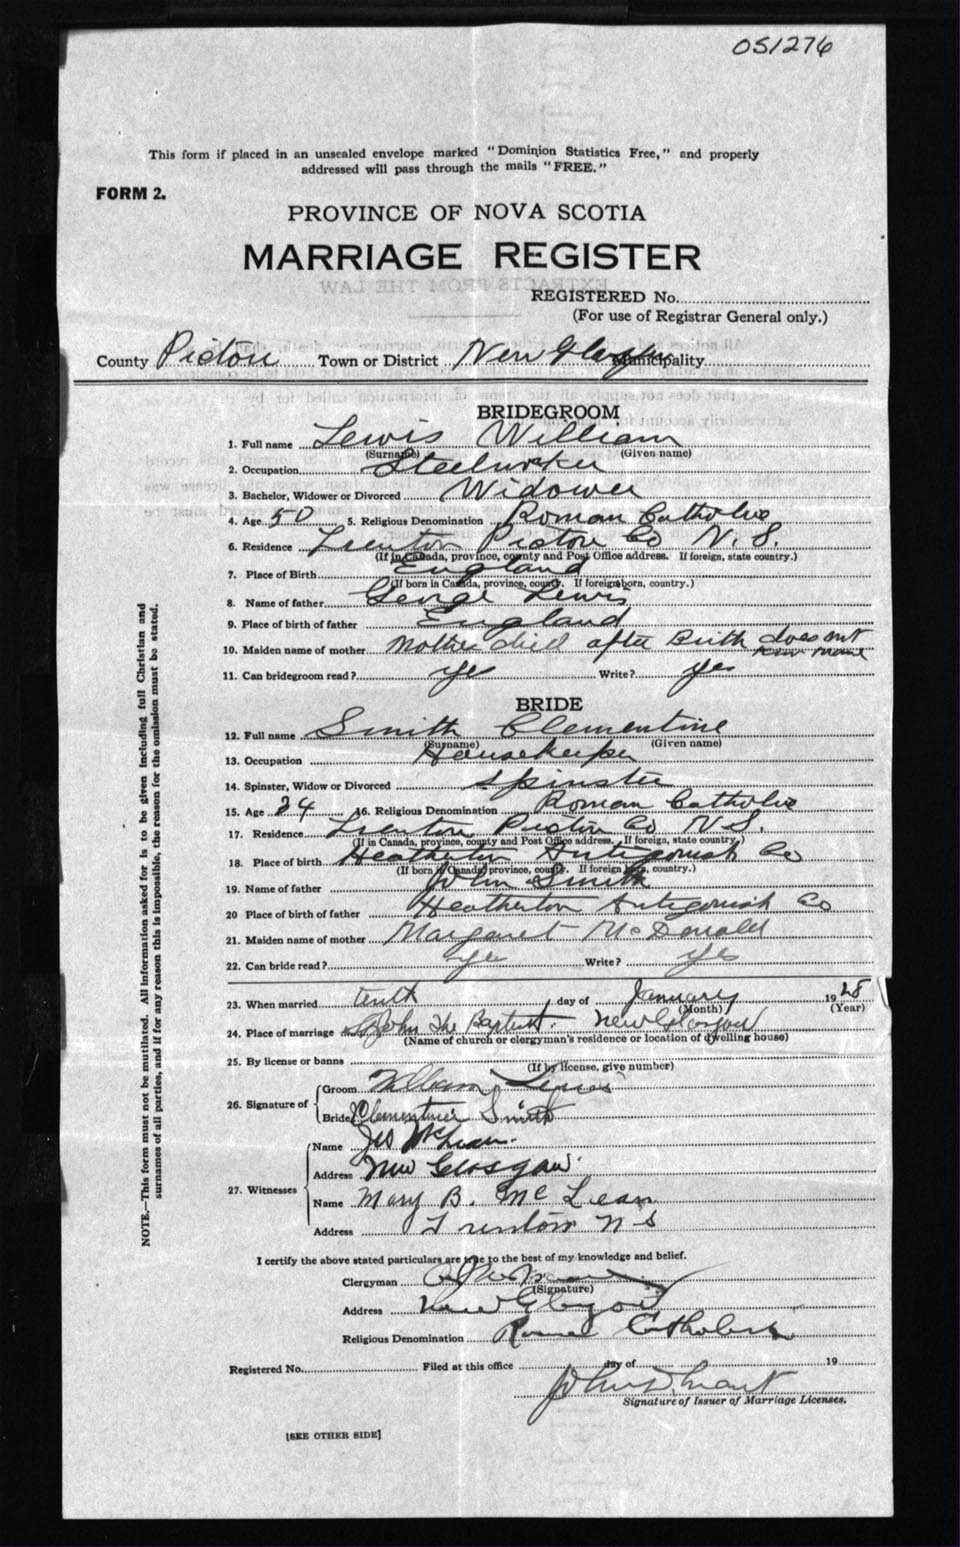 051276
This form if placed in an unsealed envelope marked "Dominion Statistics Free," and properly
addressed will pass through the mails "FREE."
FORM 2.
PROVINCE OF NOVA SCOTIA
MARRIAGE REGISTER
REGISTERED No.
(For use of Registrar General only.)
County Pictou Town or District New Glasgow Municipality
BRIDEGROOM
1. Full name Lewis William
(Surname) (Given name)
2. Occupation Steelworker
3. Bachelor, Widower or Divorced Widower
4. Age 50 5. Religious Denomination Roman Catholic
6. Residence Trenton Pictou Co N.S.
(If in Canada, province, county and Post Office address. If foreign, state country.)
7. Place of Birth England
(If born in Canada, province, county. If foreign born, country.)
8. Name of father George Lewis
9. Place of birth of father England
10. Maiden name of mother Mother died after Birth does not
know name
11. Can bridegroom read? yes Write? yes
BRIDE
12. Full name Smith Clementine
(Surname) (Given name)
13. Occupation Housekeeper
14. Spinster, Widow or Divorced Spinster
15. Age 24 16. Religious Denomination Roman Catholic
17. Residence Trenton Pictou Co N.S.
(If in Canada, province, county and Post Office address. If foreign, state country.)
18. Place of birth Heatherton Antigonish Co
(If born in Canada, province, county. If foreign born, country.)
19. Name of father John Smith
20 Place of birth of father Heatherton Antigonish Co
21. Maiden name of mother Margaret McDonald
22. Can bride read? yes Write? yes
23. When married tenth day of January 1928
(Month) (Year)
24. Place of marriage St John The Baptist. New Glasgow
(Name of church or clergyman's residence or location of dwelling house)
25. By license or banns
(If by license, give number)
26. Signature of Groom William Lewis
Bride Clementine Smith
27. Witnesses Name Jas McLean.
Address New Glasgow.
Name Mary B. McLean
Address Trenton N S
I certify the above stated particulars are true to the best of my knowledge and belief.
Clergyman
(Signature)
Address New Glasgow
Religious Denomination Roman Catholic
Registered No. Filed at this office day of 19
John Grant
Signature of Issuer of Marriage Licenses.
[SEE OTHER SIDE]
NOTE.—This form must not be mutilated. All information asked for is to be given including full Christian and
surnames of all parties, and if for any reason this is impossible, the reason for the omission must be stated.